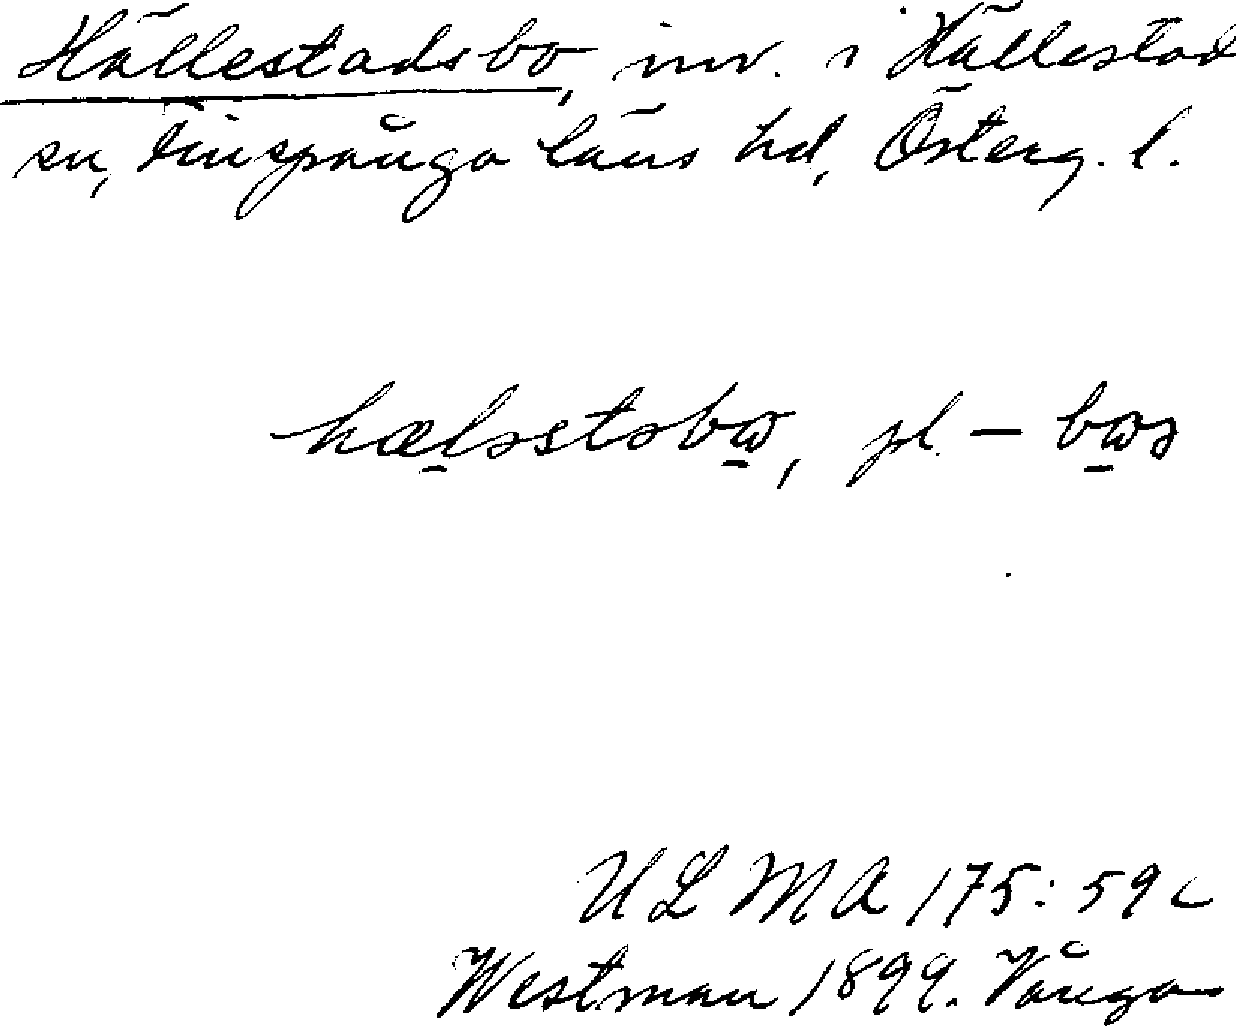 Hällestadsbo, inv. i Hällestad
sn, Finspånga läns hd, Österg. l.
hælsstsbω, pl. – bωs
ULMA 175:59 c
Westman 1899. Vånga